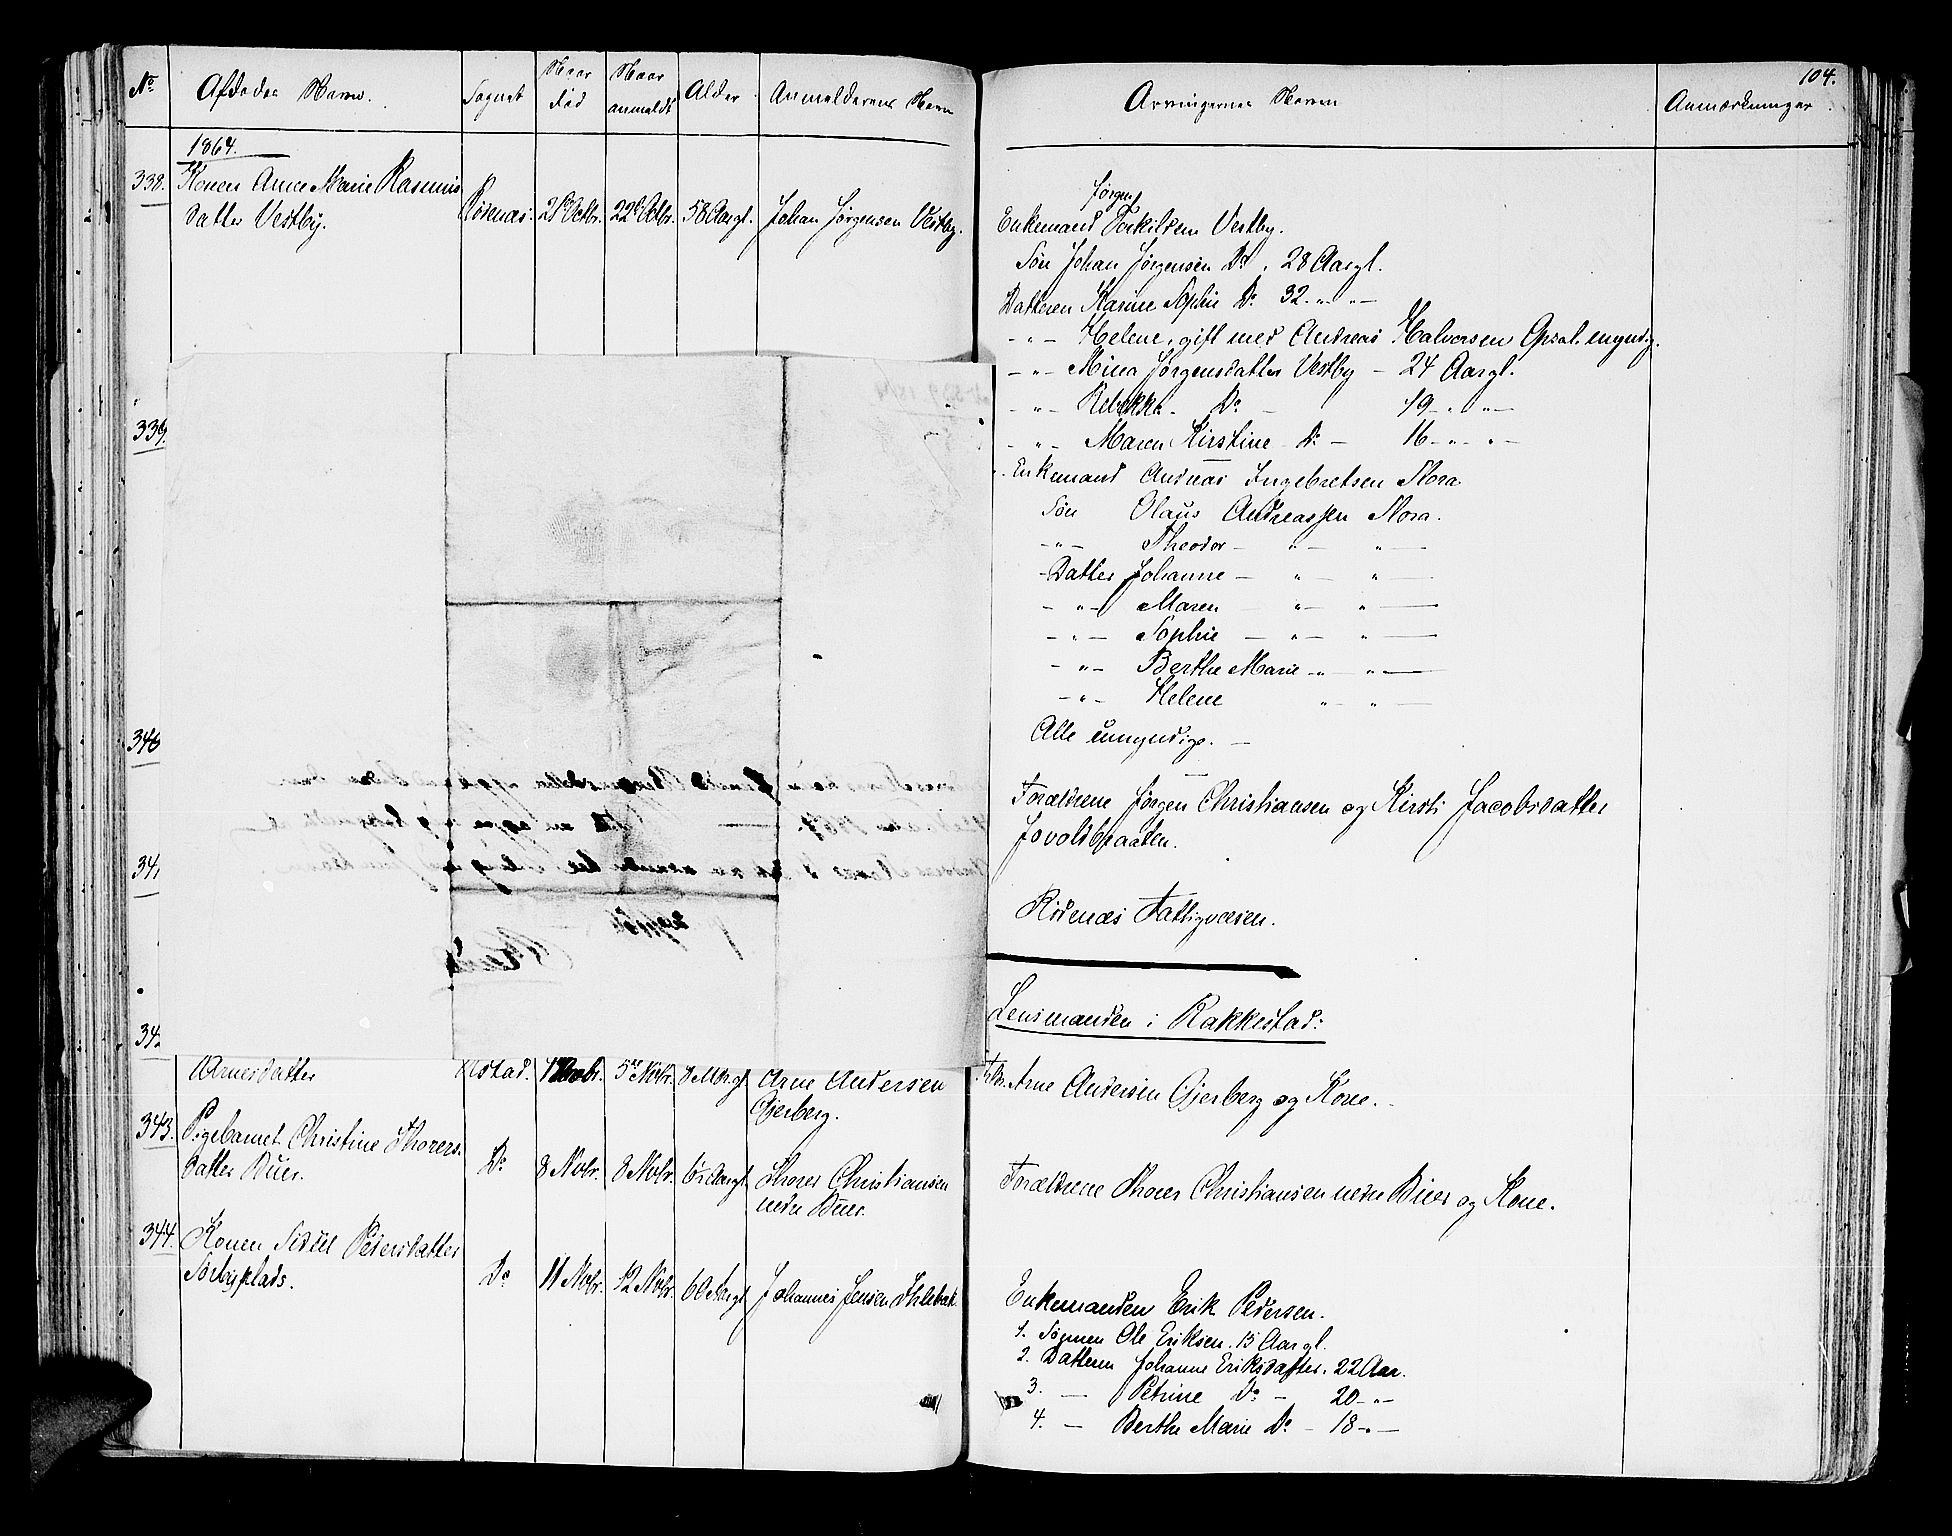 104.
No
Afdødes Navn.
Sognet
Naar død
Naar anmeldt
Alder
Anmelderens Navn
Arvingernes Navn
Anmærkninger
1864.
338. Konen Anne Marie Rasmus
datter Vestby. Rødenæs. 21 Octbr. 22 Octbr. 58 Aargl. Johan Jørgensen Vestby.
Jørgen
Enkemand Torkildsen Vestby.
Søn Johan Jørgensen Do. 28 Aargl.
Datteren Karine Sophie Do 32 " "
- " - Helene, gift med Andreas Halvorsen
- " - Mina Jørgensdatter Vestby - 24 Aargl.
- " - Rebekka - Do - 19 - " -
- " - Maren Kirstine - Do - 16 - " -
339.
Enkemand Andreas Ingebretsen Mora
Søn Olaus Andreassen Mora.
- " - Theodor - " - " -
- Datter Johanne - " - " -
- " - Maren - " - " -
- " - Sophie - " - " -
- " - Berthe Marie - " - " -
- " - Helene " - " -
Alle umyndige. -
340
Forældrene Jørgen Christiansen og Kirsti Jacobsdatter
341
Rødenæs Fattigvæsen.
Lensmanden i Rakkestad:
342
Arnesdatter 5te Nobr. Arne Andersen
Gjerberg.
Arne Andersen Gjerberg og Kone.
343. Pigebarnet Christine Thorers-
datter Buer. Do 8 Nobr. 8 Nobr. Thorer Christiansen
nedre Buer.
Forældrene Thorer Christiansen nedre Buer og Kone.
344. Konen Sidsel Pedersdatter
Sørbyplads. Do 11 Nobr. 12 Nobr. 60 Aargl. Johannes Jensen
Enkemanden Erik Pedersen.
1. Sønnen Ole Eriksen. 15 Aargl.
2. Datteren Johanne Eriksdatter. 22 Aar.
3. - Petrine Do - 20 - " -
4. - Berthe Marie Do - 18 - " -